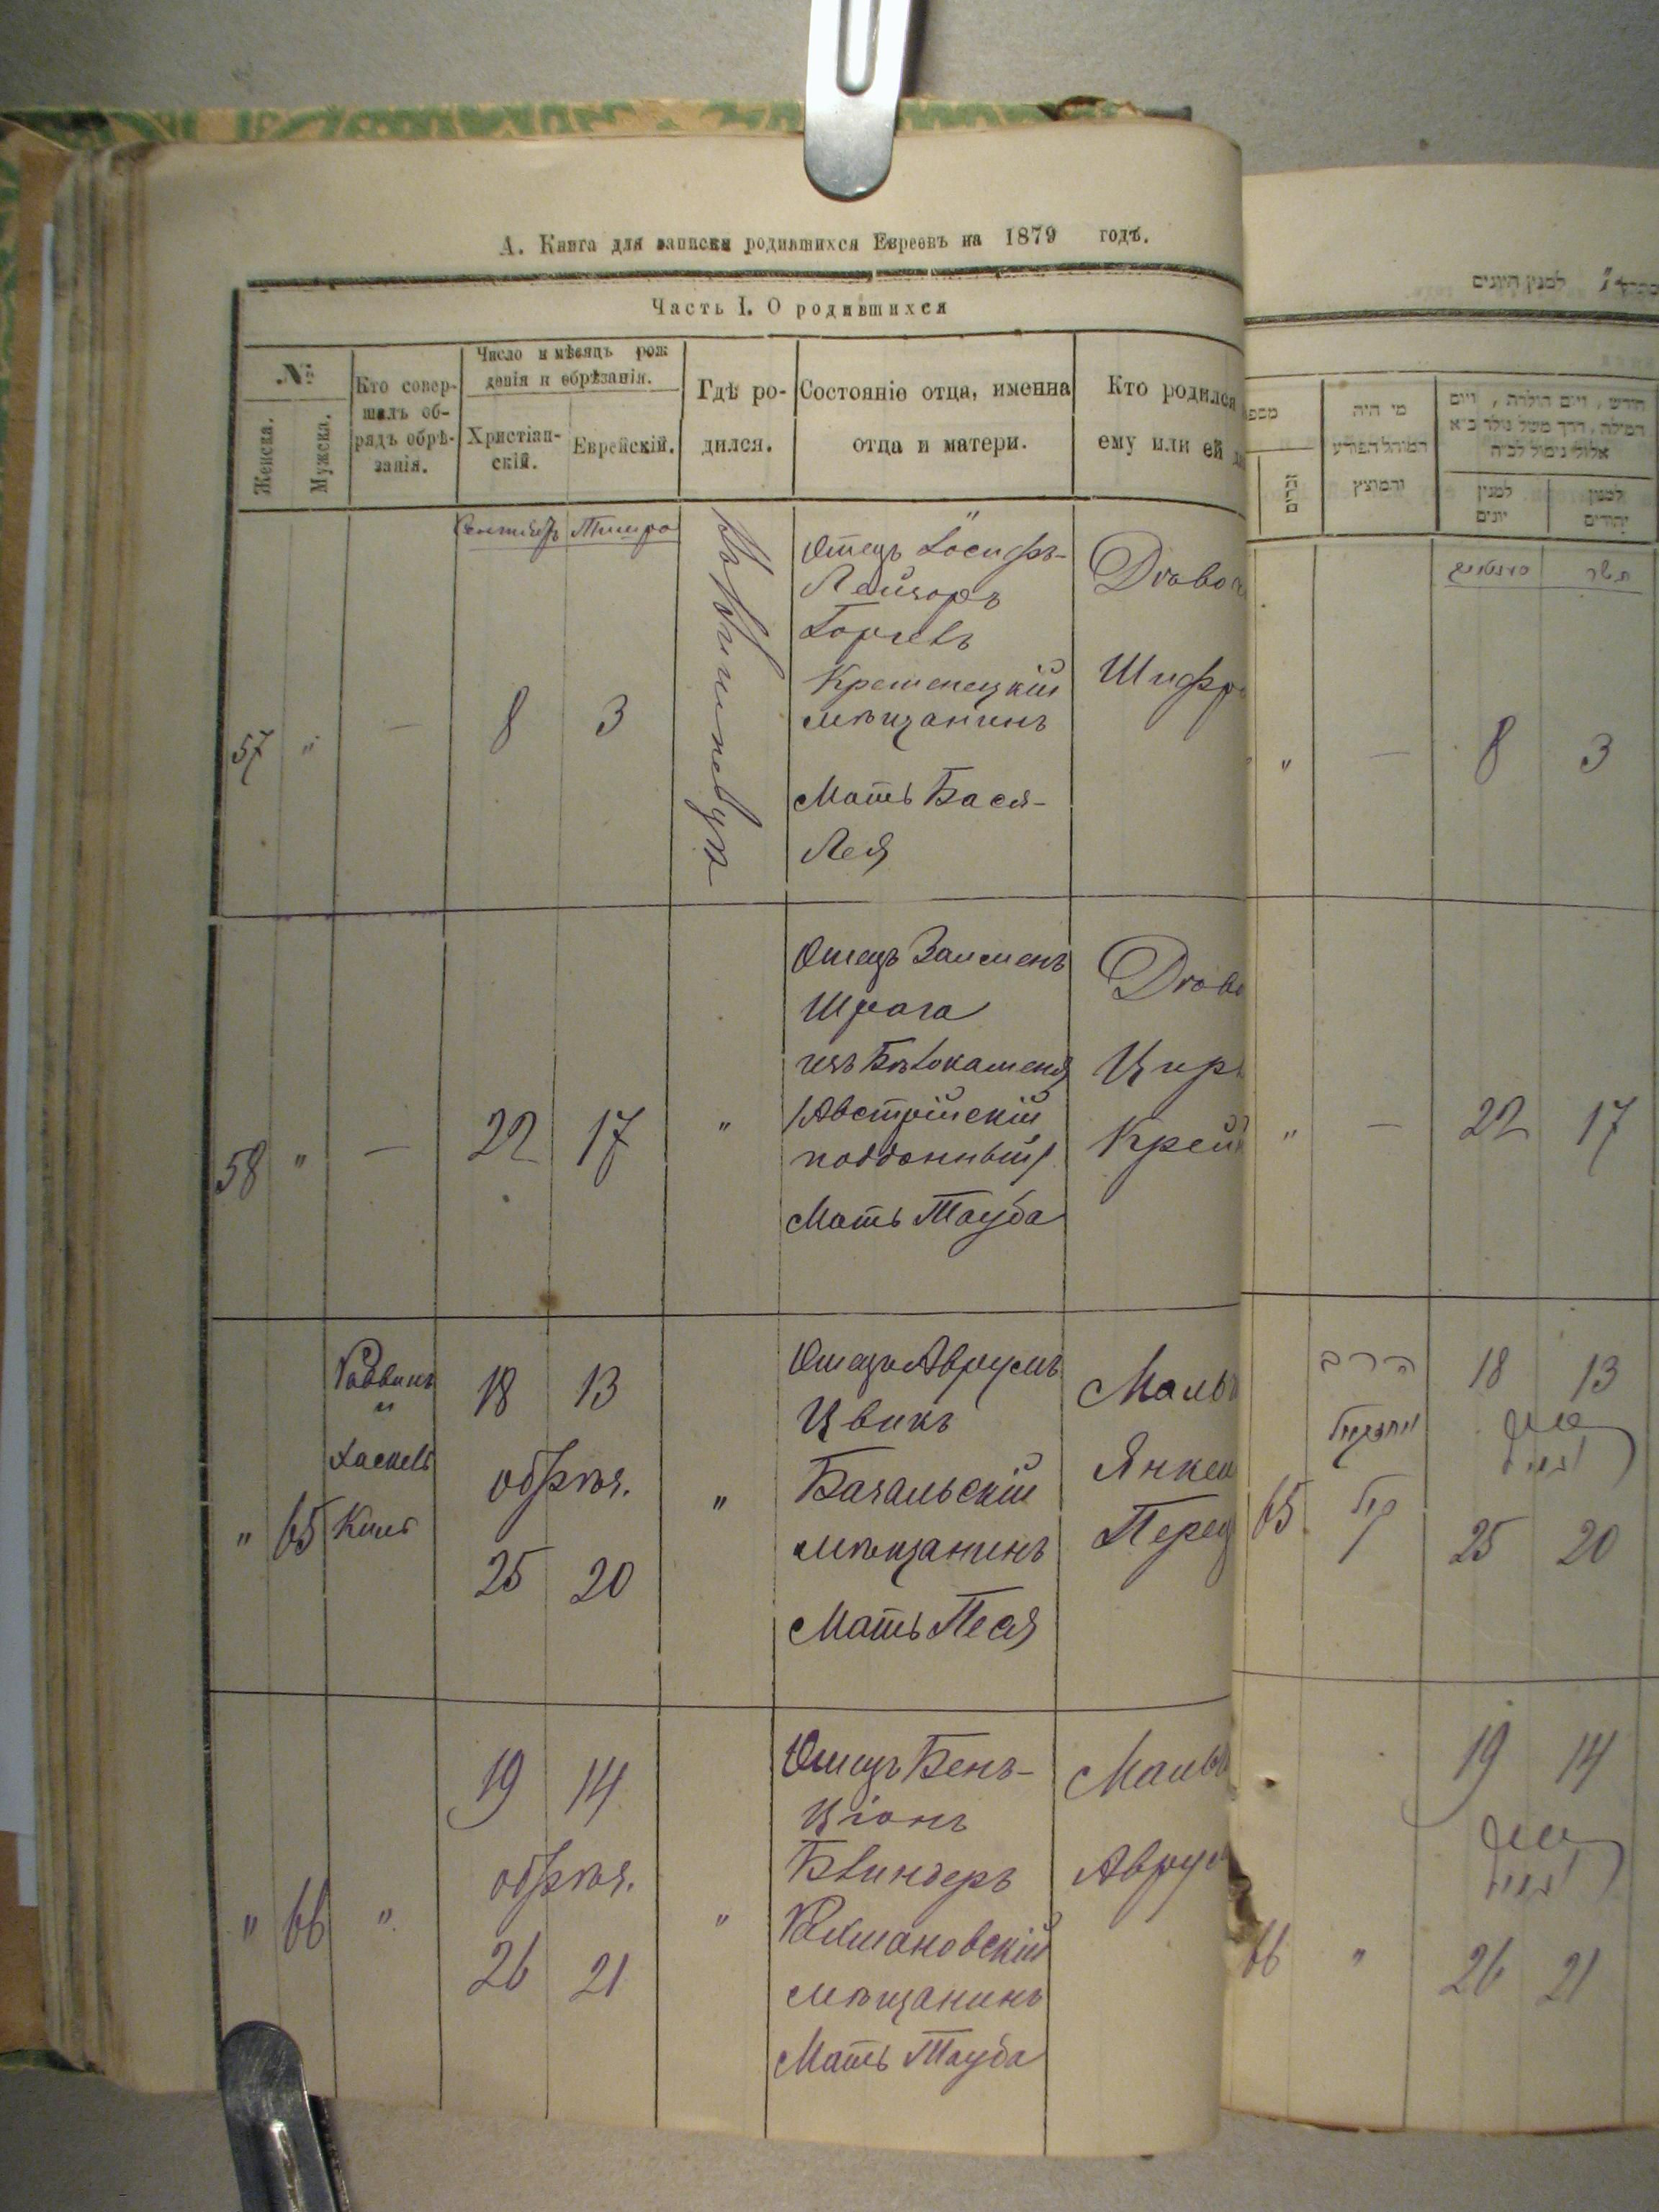 А. Книга для записки родившихся Евреевъ на 1879 годъ.
Часть I. О родившихся
№
Женска.
Мужска.
Кто совер-
шалъ об-
рядъ обрѣ-
занія.
Число и мѣсяцъ рож
денія и обрѣзанія.
Христіан-
скій.
Еврейскій.
Гдѣ ро-
дился.
Состояніе отца, именна
отца и матери.
Кто родился
ему или ей
Сентябрь Тишри
57 " — 8 3
Отецъ Іосифъ-
Лейзоръ
Кременецкій
мѣщанинъ
Мать Бася-
Лея
Шифра
58 " — 22 17 "
Отецъ Залменъ
Шрага
изъ Бѣлокаменя
/Австрійскій
подданный/
Мать Тауба
Цирл
Крейн
" 65
Раввинъ
и
Хаскель
18 13
обрѣз.
25 20
"
Отецъ Аврумъ
Цвикъ
мѣщанинъ
Мать Песя
Маль
Янкел
Перец
" 66 "
19 14
обрѣз.
26 21
"
Отецъ Бенъ-
Ціонъ
Блиндеръ
Рахмановскій
мѣщанинъ
Мать Тауба
Маль
Аврум
למנין היונים
מי היה
המוהל הפורע
והמוצץ
זכרים
חודש, ויום הולדת, ויום
המילה, דרך משל נולד כ״א
אלול נימול לכ״ח
למנין
יונים
למנין
יהודים
תשרי
" — 8 3
" — 22 17
65
הרב
18 13
25 20
66 "
19 14
26 21